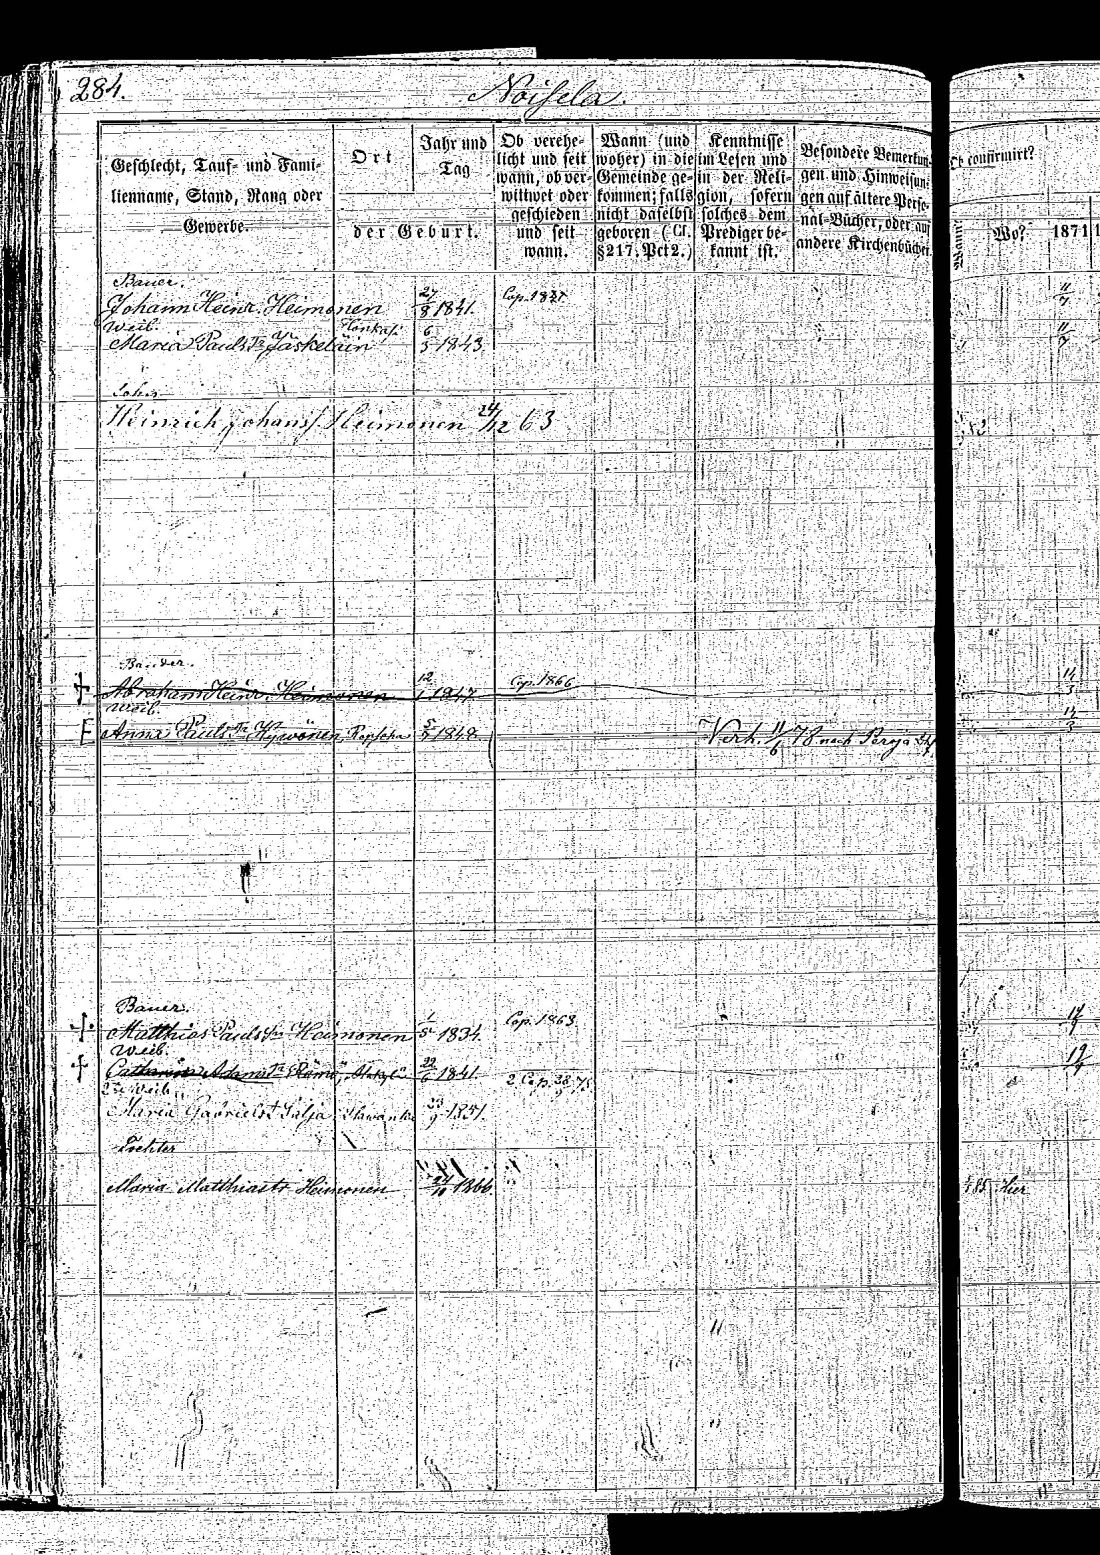 284.
Noisela.
Geschlecht, Tauf- und Fami-
lienname, Stand, Rang oder
Gewerbe.
Ort
Jahr und
Tag
der Geburt.
Ob verehe-
licht und seit
wann, ob ver-
wittwet oder
geschieden
und seit
wann.
Wann (und
woher) in die
Gemeinde ge-
kommen; falls
nicht daselbst
geboren (Cf.
§217. Pct 2.)
Kenntnisse
im Lesen und
in der Reli-
gion, sofern
solches dem
Prediger be-
kannt ist.
Besondere Bemerkun-
gen und Hinweisun-
gen auf ältere Perso-
nal-Bücher, oder auf
andere Kirchenbücher.
Ob confirmirt?
Wann?
Wo?
1871
Bauer.
Johann Heinr. Heimonen 27/8 1841.
Weib.
Maria Pauls Tr Jäskeläin 6/5 1843
Sohn
Heinrich Johanss. Heimonen 24/12 63
Bauer.
Abraham Heinr. Heimonen 1847 Cop. 1866
Weib.
Anna Pauls Tr Hywönen 1848 Verh. 11/6 78 nach
Bauer.
Matthias Pauls Sn Heimonen 1/5 1834. Cop. 1863
Weib.
Catharina Adams Tr 22/6 1841.
2te Weib.
Maria Gabrielst Silja 1851.
Tochter
Maria Matthiastr Heimonen 24/10 1866. 85 Hier